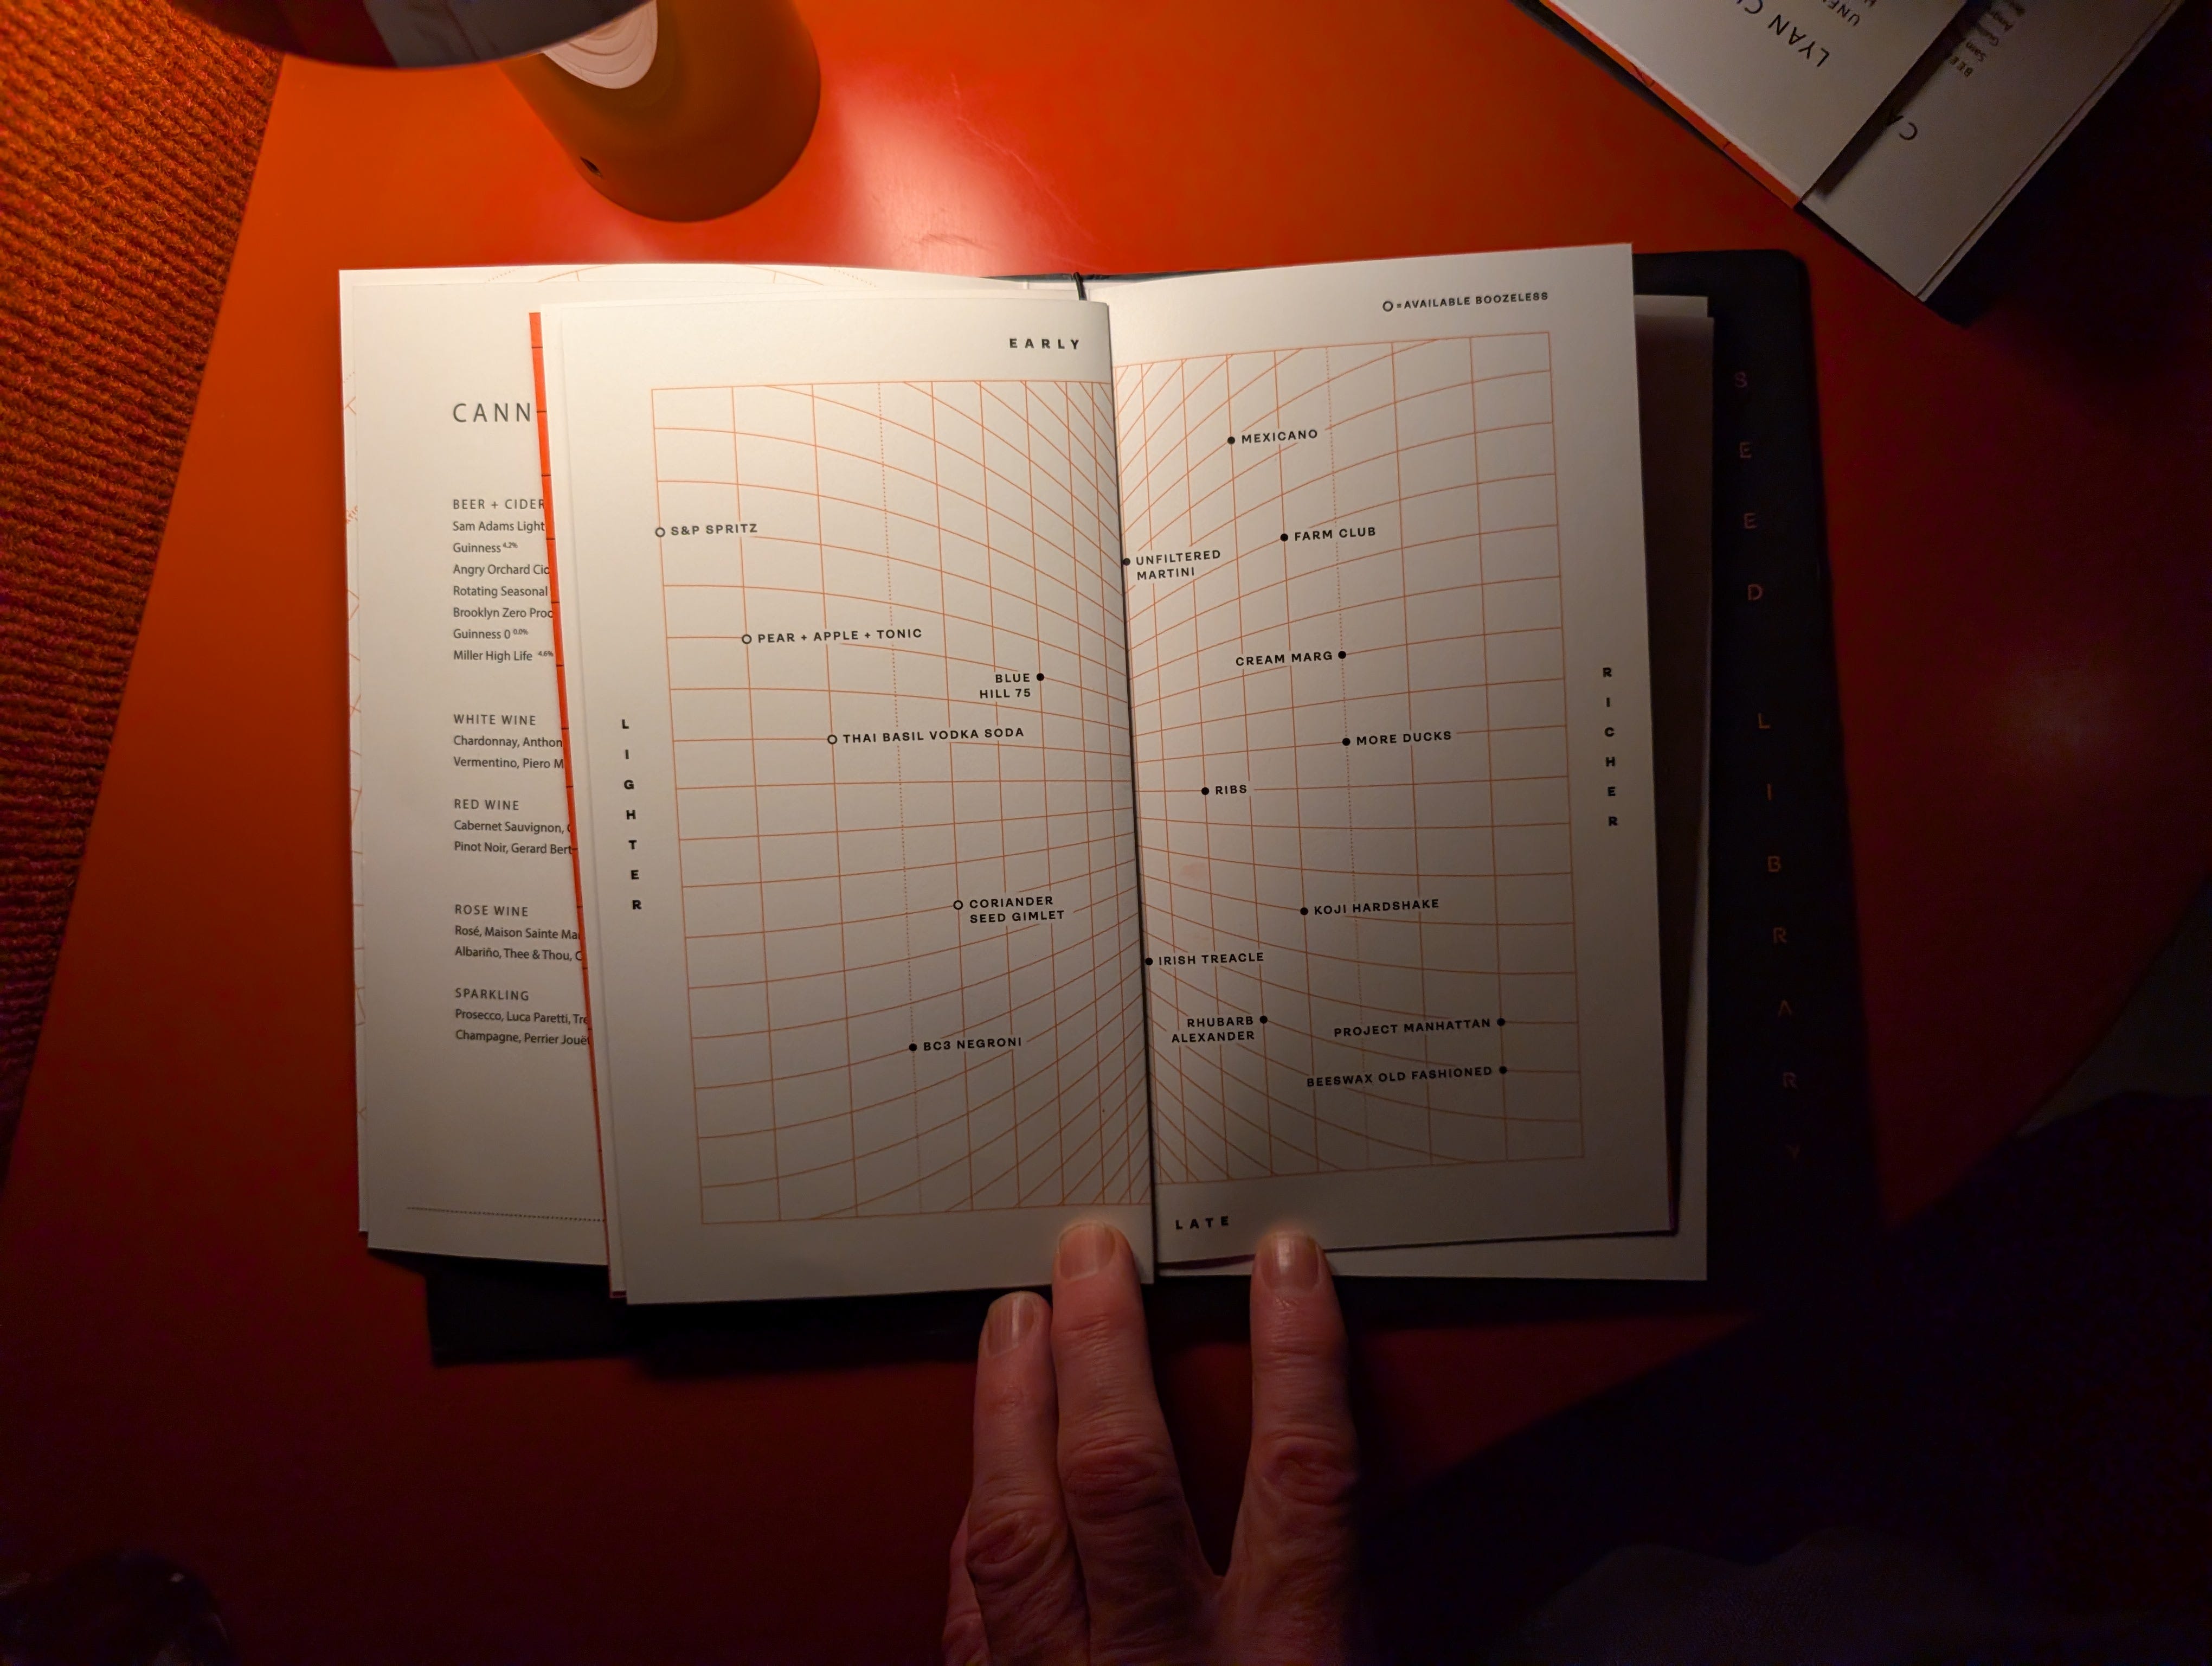 CANN
BEER + CIDER
Sam Adams Light
Guinness 4.2%
Angry Orchard
Rotating Seasonal
Brooklyn Zero
Guinness 0 0.0%
Miller High Life 4.6%
WHITE WINE
Chardonnay, Anthon
Vermentino, Piero M
RED WINE
Cabernet Sauvignon,
Pinot Noir, Gerard Bert
ROSE WINE
Rosé, Maison Sainte Ma
Albariño, Thee & Thou, C
SPARKLING
Prosecco, Luca Paretti, Tre
Champagne, Perrier Jouë
EARLY
LIGHTER
S&P SPRITZ
PEAR + APPLE + TONIC
BLUE
HILL 75
THAI BASIL VODKA SODA
CORIANDER
SEED GIMLET
BC3 NEGRONI
O = AVAILABLE BOOZELESS
MEXICANO
FARM CLUB
UNFILTERED
MARTINI
CREAM MARG
MORE DUCKS
RIBS
KOJI HARDSHAKE
IRISH TREACLE
RHUBARB
ALEXANDER
PROJECT MANHATTAN
BEESWAX OLD FASHIONED
RICHER
LATE
SEED LIBRARY
LYAN